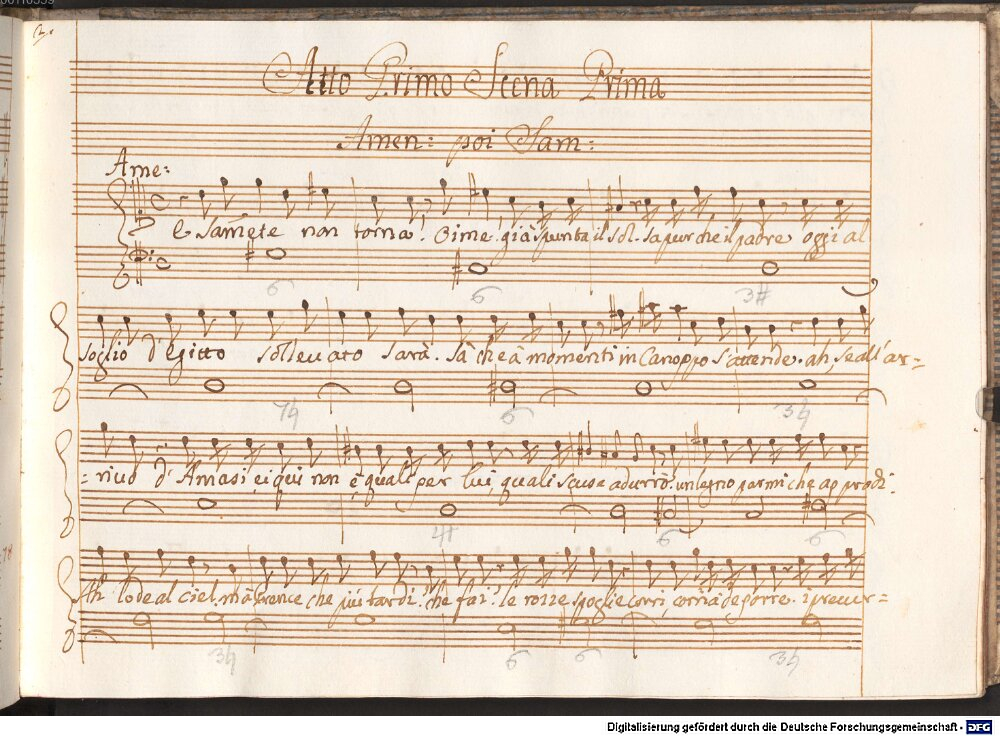 Atto Primo Scena Prima
Amen: poi Sam:
Ame:
E Samete non torna! Oime, già spunta il sol. sà pur che il padre oggi al
6 6 3#
soglio d'Egitto sollevato sarà. Sà che à momenti in Canoppo s'attende. ah, se all'ar=
7♮ 6 3♮
=rivo d'Amasi ei qui non è, quali per lui, quali scuse adurrò? un legno parmi che approdi.
4# 6 6
Ah lode al ciel. mà Prence che più tardi? che fai? le rozze spoglie corri, corri à deporre. i precur=
3♮ 6 6 3♮
Digitalisierung gefördert durch die Deutsche Forschungsgemeinschaft - DFG